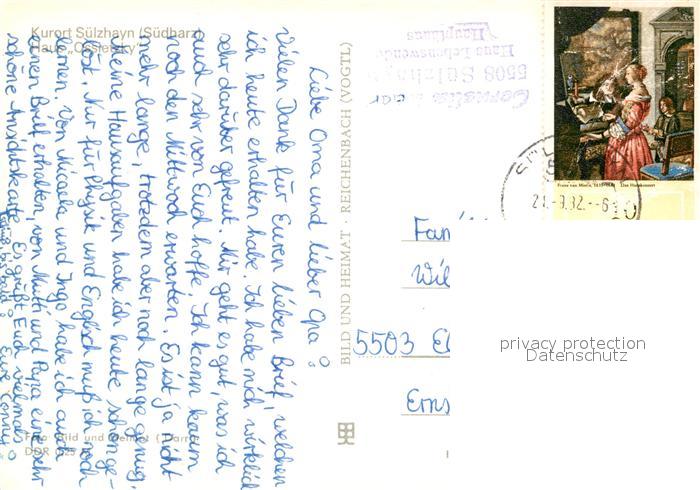 Kurort Sülzhayn (Südharz)
Haus „Ossietzky"
Liebe Oma und lieber Opa!
Vielen Dank für Euren lieben Brief, welchen
ich heute erhalten habe. Ich habe mich wirklich
sehr darüber gefreut. Mir geht es gut, was ich
auch sehr von Euch hoffe. Ich kann kaum
noch den Mittwoch erwarten. Es ist ja nicht
mehr lange, trotzdem aber noch lange genug.
Meine Hausaufgaben habe ich heute schon ge-
löst. Nur für Physik und Englisch muß ich noch
lernen. Von Micaela und Ingo habe ich auch
einen Brief erhalten, von Mutti und Papa eine sehr
schöne Ansichtskarte. Es grüßt Euch vielmals
Eure Conny!
bis bald!
Foto: Bild und Heimat
DDR
BILD UND HEIMAT · REICHENBACH (VOGTL)
Cornelia
5508 Sülzhayn
Haus Lebenswende
Haupthaus
Frans van Mieris, Das Hauskonzert
10
.9.82.--6
Fam
Wil
5503 El
Erns
privacy protection
Datenschutz